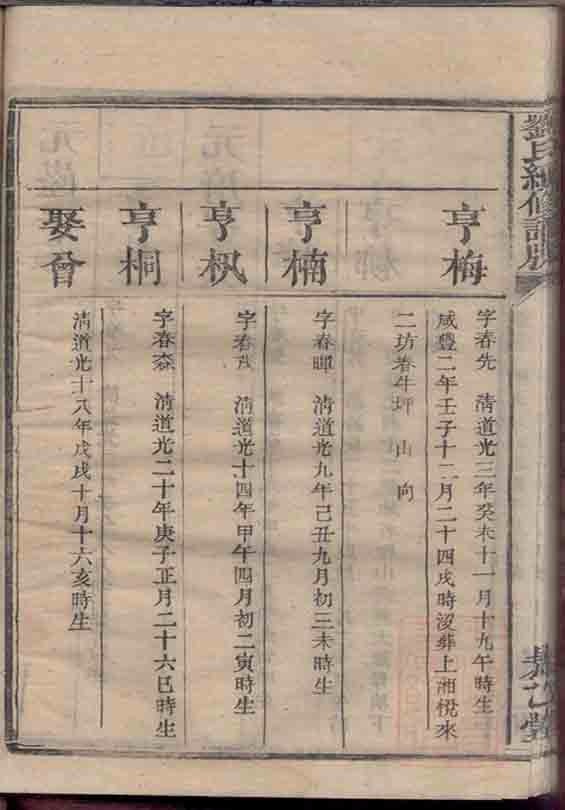 劉氏續修譜牒
亨梅
字春先 清道光三年癸未十一月十九午時生
咸豐二年壬子十二月二十四戌時沒葬上湘梲來
二坊春牛坪 山 向
亨楠
字春暉 清道光九年己丑九月初三未時生
亨枫
字春 清道光十四年甲午四月初二寅時生
亨桐
字春森 清道光二十年庚子正月二十六巳時生
娶曾
清道光十八年戊戌十月十六亥時生